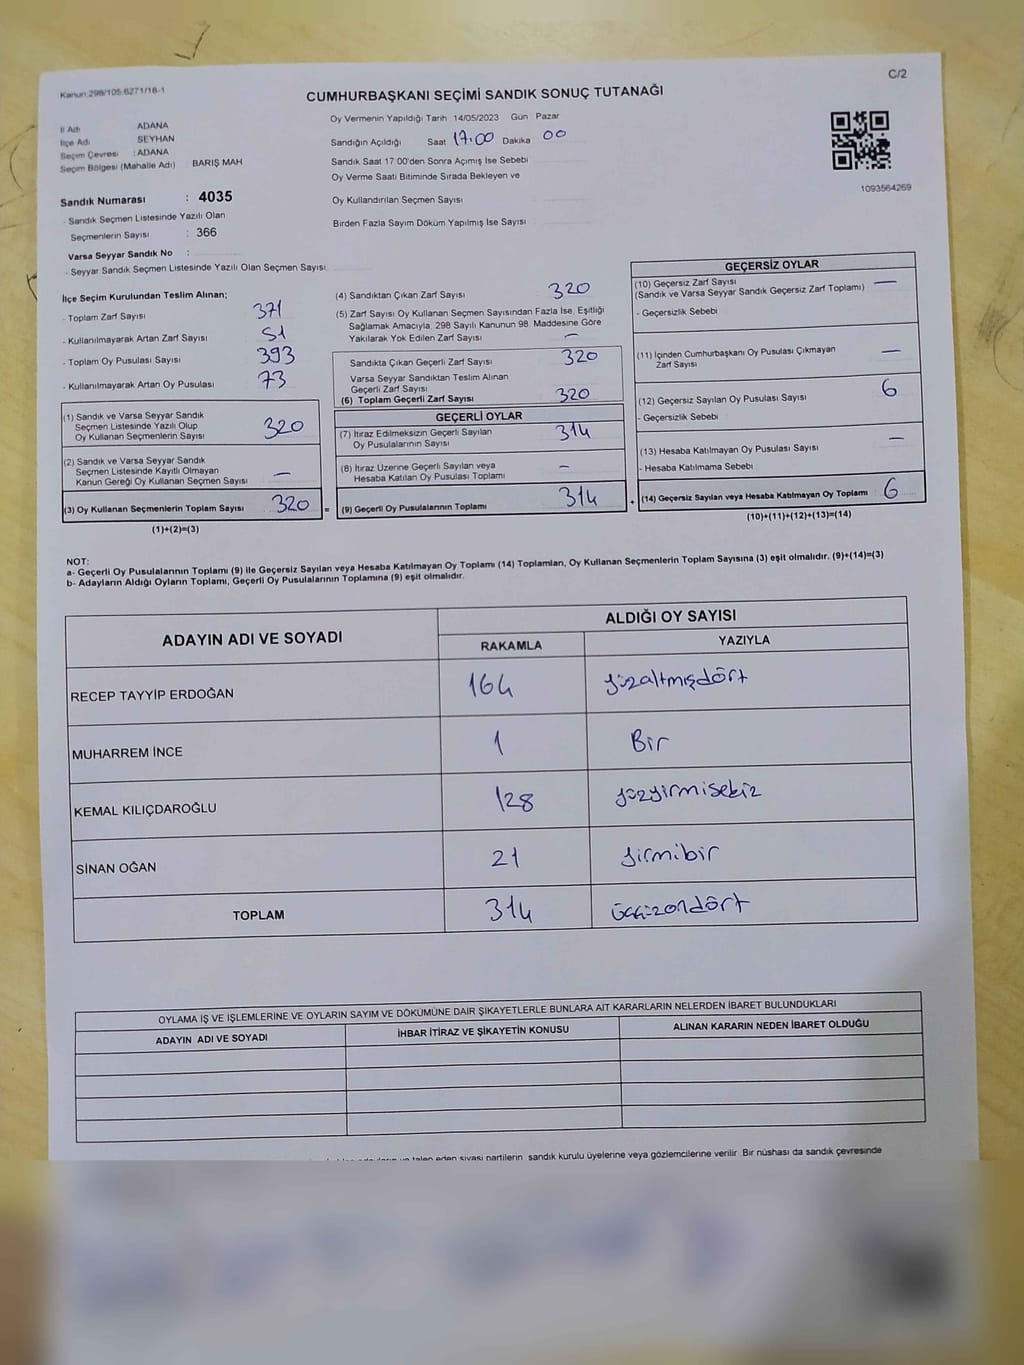 Kanun:298/105.6271/16-1
C/2
CUMHURBAŞKANI SEÇİMİ SANDIK SONUÇ TUTANAĞI
İl Adı ADANA
İlçe Adı SEYHAN
Seçim Çevresi : ADANA
Seçim Bölgesi (Mahalle Adı) BARIŞ MAH
Sandık Numarası : 4035
- Sandık Seçmen Listesinde Yazılı Olan
Seçmenlerin Sayısı : 366
Varsa Seyyar Sandık No :
- Seyyar Sandık Seçmen Listesinde Yazılı Olan Seçmen Sayısı
Oy Vermenin Yapıldığı Tarih 14/05/2023 Gün Pazar
Sandığın Açıldığı Saat 17:00 Dakika 00
Sandık Saat 17:00'den Sonra Açımış İse Sebebi
Oy Verme Saati Bitiminde Sırada Bekleyen ve
Oy Kullandırılan Seçmen Sayısı
Birden Fazla Sayım Döküm Yapılmış İse Sayısı
1093564269
İlçe Seçim Kurulundan Teslim Alınan;
- Toplam Zarf Sayısı 371
- Kullanılmayarak Artan Zarf Sayısı 51
- Toplam Oy Pusulası Sayısı 393
- Kullanılmayarak Artan Oy Pusulası 73
(1) Sandık ve Varsa Seyyar Sandık
Seçmen Listesinde Yazılı Olup
Oy Kullanan Seçmenlerin Sayısı 320
(2) Sandık ve Varsa Seyyar Sandık
Seçmen Listesinde Kayıtlı Olmayan
Kanun Gereği Oy Kullanan Seçmen Sayısı —
(3) Oy Kullanan Seçmenlerin Toplam Sayısı 320 =
(1)+(2)=(3)
(4) Sandıktan Çıkan Zarf Sayısı 320
(5) Zarf Sayısı Oy Kullanan Seçmen Sayısından Fazla İse, Eşitliği
Sağlamak Amacıyla, 298 Sayılı Kanunun 98. Maddesine Göre
Yakılarak Yok Edilen Zarf Sayısı —
Sandıkta Çıkan Geçerli Zarf Sayısı 320
Varsa Seyyar Sandıktan Teslim Alınan
Geçerli Zarf Sayısı
(6) Toplam Geçerli Zarf Sayısı 320
GEÇERLİ OYLAR
(7) İtiraz Edilmeksizin Geçerli Sayılan
Oy Pusulalarının Sayısı 314
(8) İtiraz Üzerine Geçerli Sayılan veya
Hesaba Katılan Oy Pusulası Toplamı —
(9) Geçerli Oy Pusulalarının Toplamı 314 +
GEÇERSİZ OYLAR
(10) Geçersiz Zarf Sayısı —
(Sandık ve Varsa Seyyar Sandık Geçersiz Zarf Toplamı)
- Geçersizlik Sebebi
(11) İçinden Cumhurbaşkanı Oy Pusulası Çıkmayan
Zarf Sayısı —
(12) Geçersiz Sayılan Oy Pusulası Sayısı 6
- Geçersizlik Sebebi
(13) Hesaba Katılmayan Oy Pusulası Sayısı —
- Hesaba Katılmama Sebebi
(14) Geçersiz Sayılan veya Hesaba Katılmayan Oy Toplamı 6
(10)+(11)+(12)+(13)=(14)
NOT:
a- Geçerli Oy Pusulalarının Toplamı (9) ile Geçersiz Sayılan veya Hesaba Katılmayan Oy Toplamı (14) Toplamları, Oy Kullanan Seçmenlerin Toplam Sayısına (3) eşit olmalıdır. (9)+(14)=(3)
b- Adayların Aldığı Oyların Toplamı, Geçerli Oy Pusulalarının Toplamına (9) eşit olmalıdır.
ADAYIN ADI VE SOYADI ALDIĞI OY SAYISI
RAKAMLA YAZIYLA
RECEP TAYYİP ERDOĞAN 164 yüzaltmışdört
MUHARREM İNCE 1 Bir
KEMAL KILIÇDAROĞLU 128 yüzyirmisekiz
SİNAN OĞAN 21 yirmibir
TOPLAM 314 üçyüzondört
OYLAMA İŞ VE İŞLEMLERİNE VE OYLARIN SAYIM VE DÖKÜMÜNE DAİR ŞİKAYETLERLE BUNLARA AİT KARARLARIN NELERDEN İBARET BULUNDUKLARI
ADAYIN ADI VE SOYADI İHBAR İTİRAZ VE ŞİKAYETİN KONUSU ALINAN KARARIN NEDEN İBARET OLDUĞU
talep eden siyasi partilerin sandık kurulu üyelerine veya gözlemcilerine verilir. Bir nüshası da sandık çevresinde